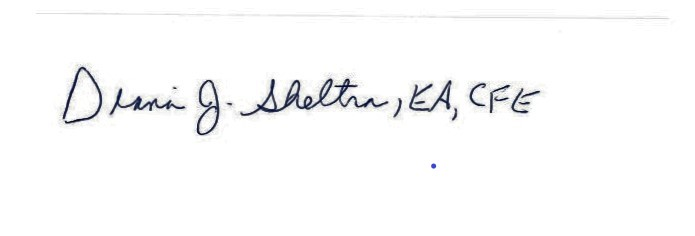 Diana J. Sheltra, EA, CFE